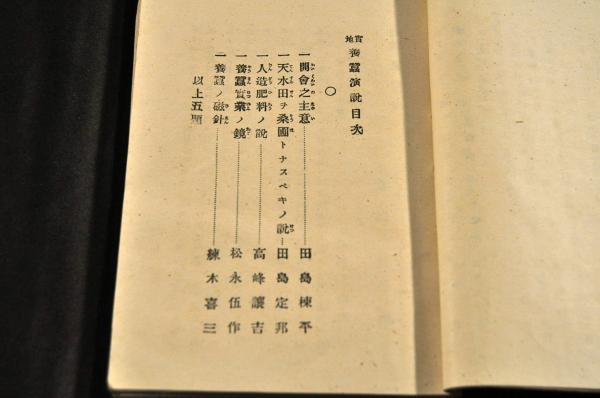 實地養蠶演說目次
○
一開會之主意………田島棟平
一天水田ヲ桑園トナスベキノ說…田島定邦
一人造肥料ノ說………高峰讓吉
一養蠶實業ノ鏡………松永伍作
一養蠶ノ磁針………練木喜三
以上五題